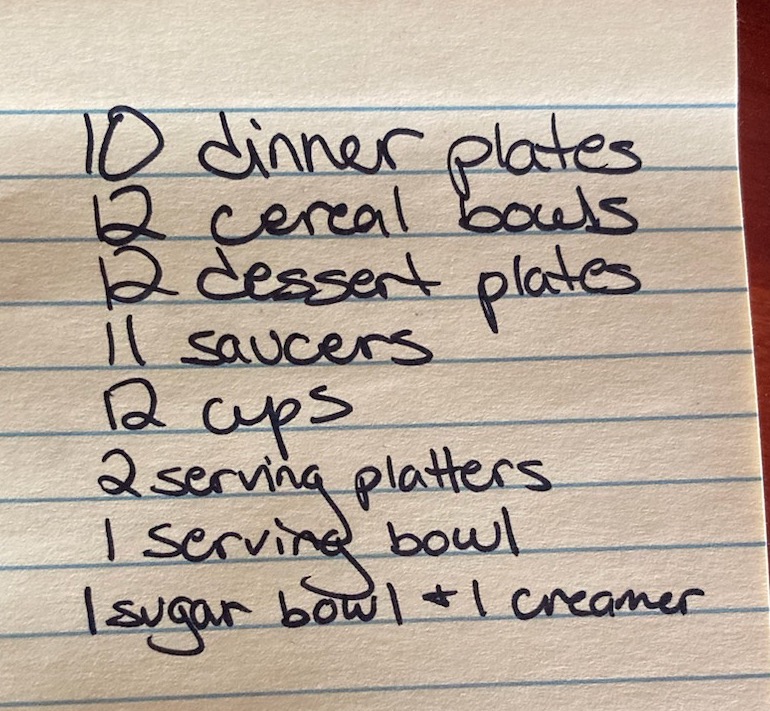 10 dinner plates
12 cereal bowls
12 dessert plates
11 saucers
12 cups
2 serving platters
1 serving bowl
1 sugar bowl + 1 creamer